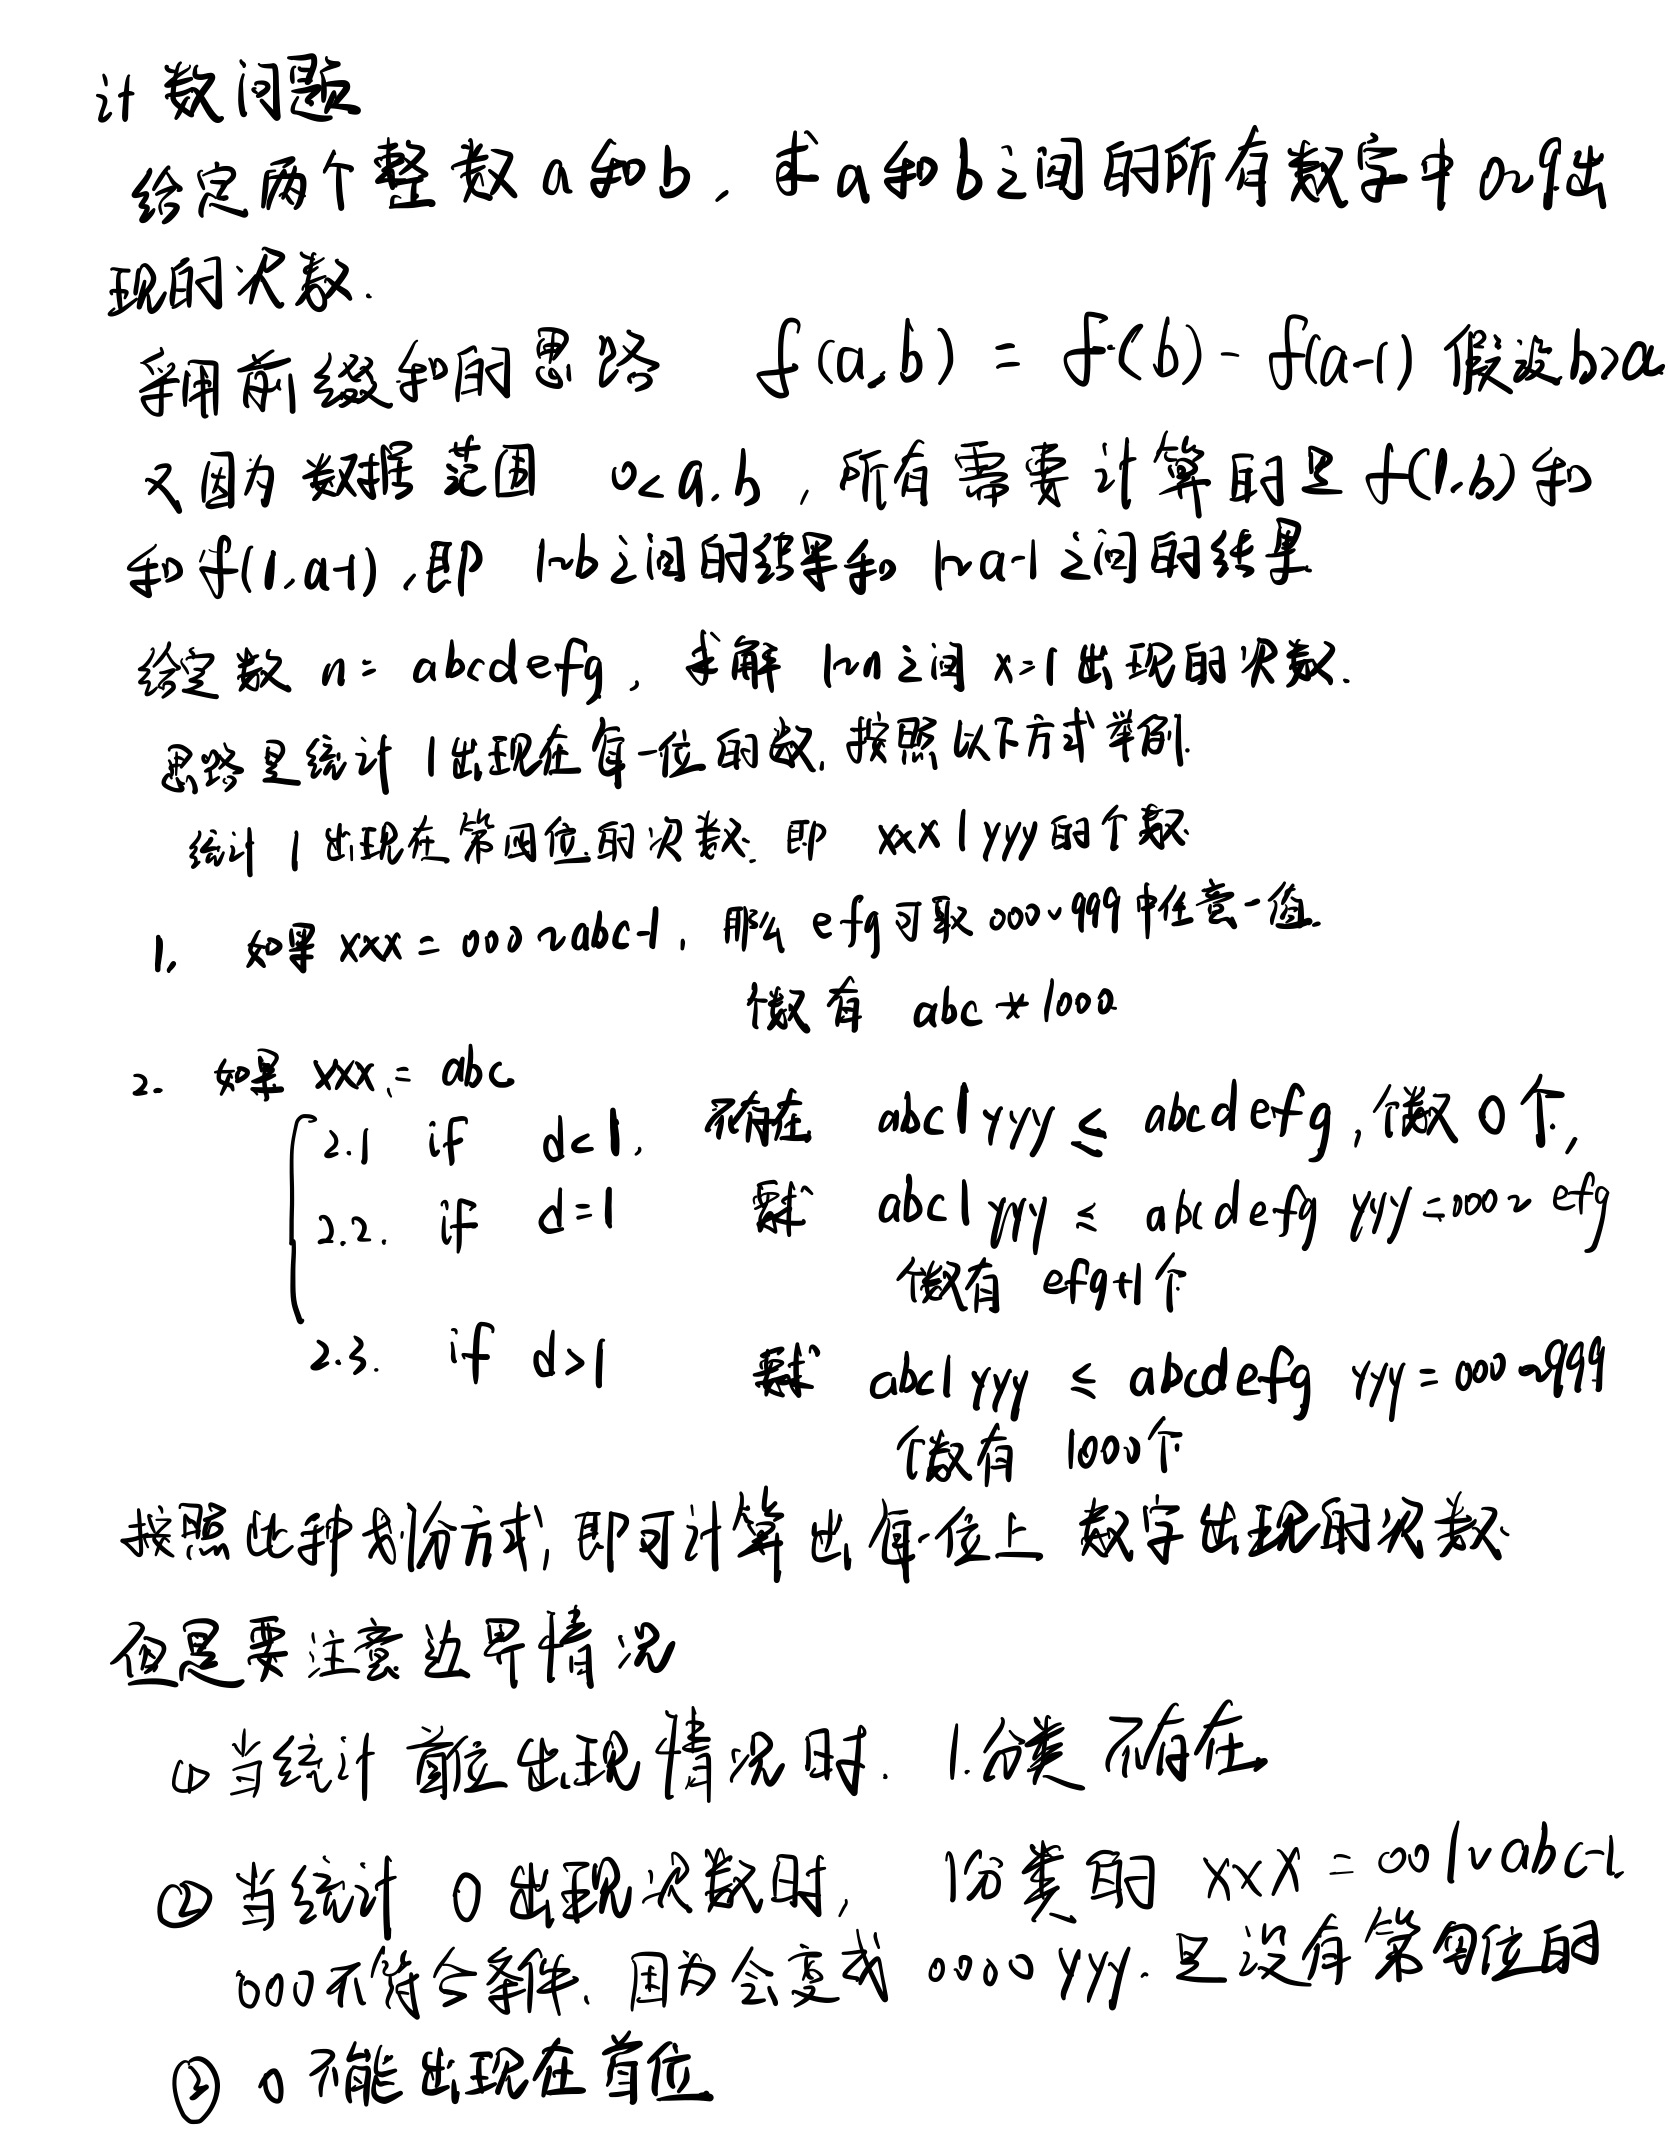 计数问题
给定两个整数a和b，求a和b之间的所有数字中0~9出
现的次数.
采用前缀和的思路 f(a,b) = f(b) - f(a-1) 假设b>a
又因为数据范围 0<a,b，所有需要计算的是f(1,b)和
和f(1,a-1),即 1~b之间的结果和 1~a-1之间的结果.
给定数 n= abcdefg，求解 1~n之间 x=1出现的次数.
思路是统计 1出现在每一位的数,按照以下方式举例.
统计 1 出现在第四位的次数. 即 xxx1yyy的个数.
1, 如果 xxx = 000~abc-1, 那么 efg可取 000~999中任意一值.
个数有 abc*1000
2. 如果 xxx = abc
2.1 if d<1, 不存在 abc1yyy ≤ abcdefg,个数0个,
2.2. if d=1 要求 abc1yyy ≤ abcdefg yyy=000~efg
个数有 efg+1个
2.3. if d>1 要求 abc1yyy ≤ abcdefg yyy=000~999
个数有 1000个
按照此种划份方式,即可计算出每一位上数字出现的次数.
但是要注意边界情况
(1)当统计首位出现情况时. 1.分类不存在.
② 当统计 0出现次数时, 1份类的 xxx=001~abc-1.
000不符合条件.因为会变成 0000yyy.是没有第四位的
③ 0不能出现在首位